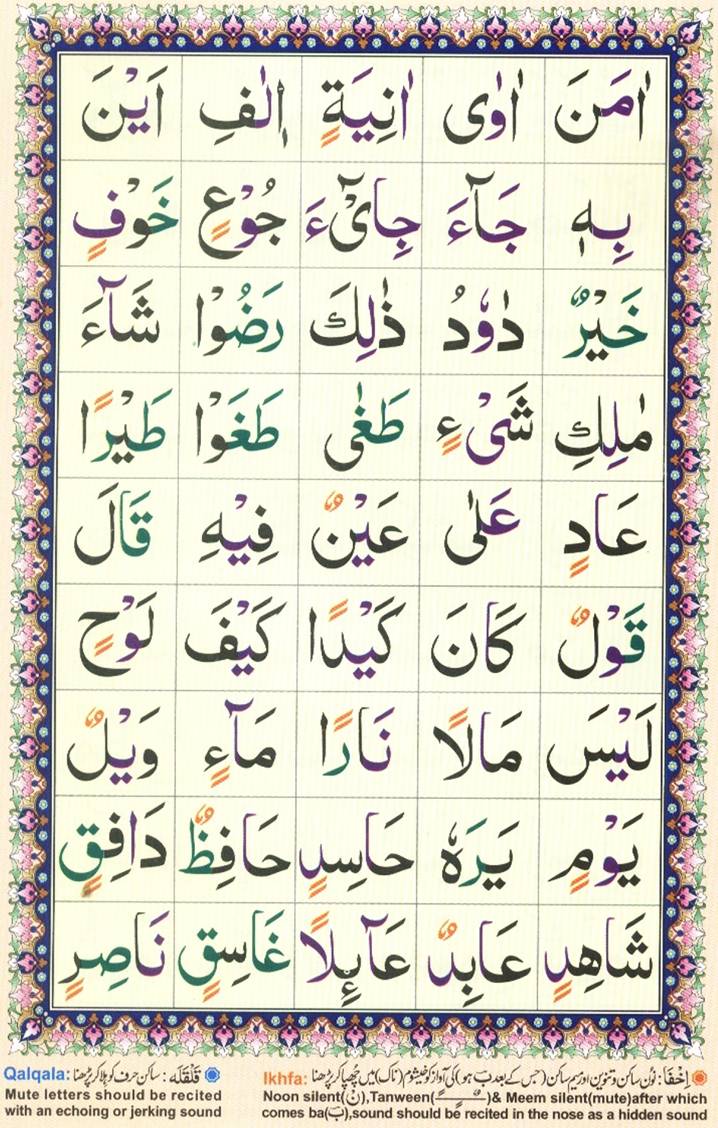 اٰمَنَ اٰوٰى اٰنِيَةٍ اٖلٰفِ اَيْنَ
بِهٖ جَآءَ جِایْٓءَ جُوْعٍ خَوْفٍ
خَيْرٌ دٰوٗدُ ذٰلِكَ رَضُوْا شَآءَ
مٰلِكِ شَىْءٍ طَغٰى طَغَوْا طَيْرًا
عَادٍ عَلٰى عَيْنٌ فِيْهِ قَالَ
قَوْلٌ كَانَ كَيْدًا كَيْفَ لَوْحٍ
لَيْسَ مَالًا نَارًا مَآءٍ وَيْلٌ
يَوْمٍ يَرَهٗ حَاسِدٍ حَافِظٌ دَافِقٍ
شَاهِدٍ عَابِدٌ عَآئِلًا غَاسِقٍ نَاصِرٍ
اِخْفَا: نون ساکن و تنوین اور میم ساکن (جس کے بعد بَ ہو) کی آواز کو خیشوم (ناک) میں چھپا کر پڑھنا
Ikhfa:
Noon silent(نْ),Tanween(ـًـٍـٌ)& Meem silent(mute)after which
comes ba(بَ),sound should be recited in the nose as a hidden sound
قَلْقَلَه: ساکن حرف کو ہلا کر پڑھنا
Qalqala:
Mute letters should be recited
with an echoing or jerking sound